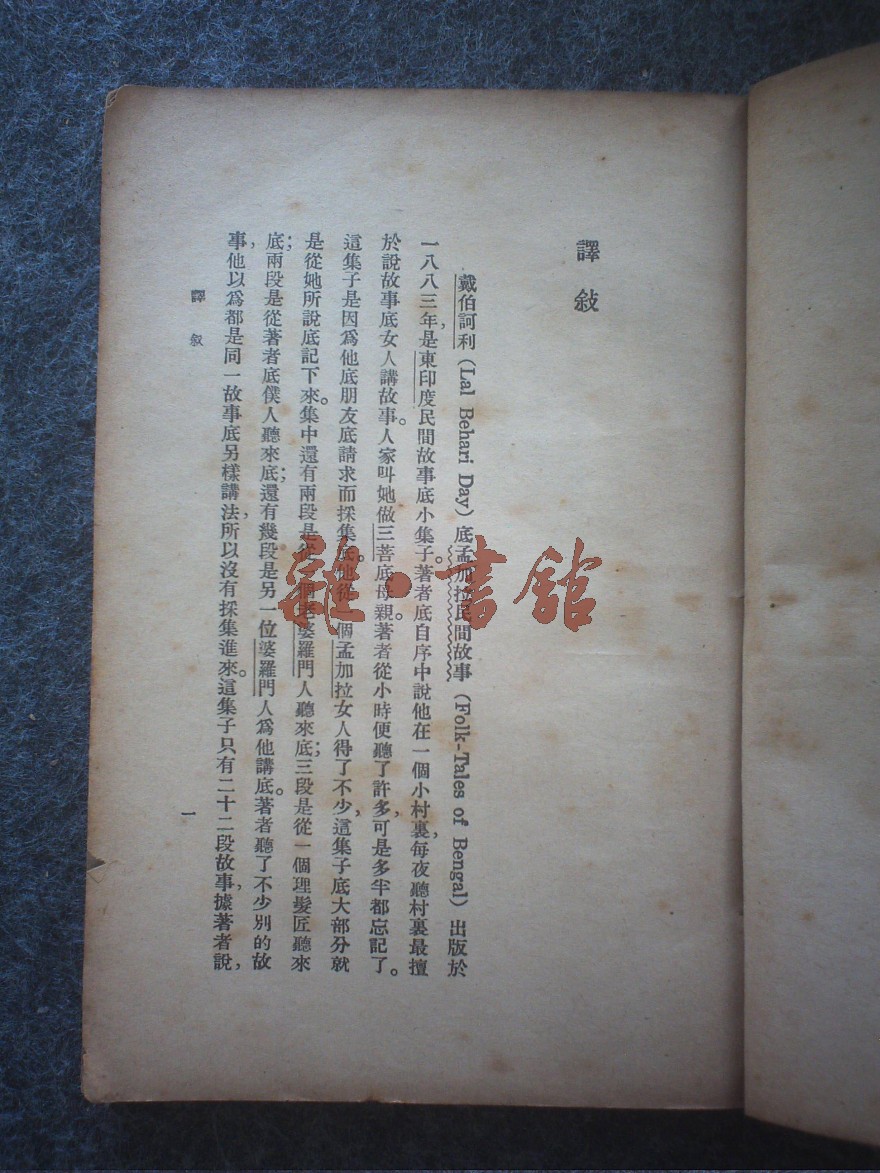 譯敍
戴伯訶利(Lal Behari Day)底孟加拉民間故事(Folk-Tales of Bengal)出版於
一八八三年,是東印度民間故事底小集子。著者底自序中說他在一個小村裏,每夜聽村裏最擅
於說故事底女人講故事。人家叫她做三菩底母親。著者從小時便聽了許多,可是多半都忘記了。
這集子是因爲他底朋友底請求而採集底。他從一個孟加拉女人得了不少,這集子底大部分就
是從她所說底記下來。集中還有兩段是從一個老婆羅門人聽來底;三段是從一個理髮匠聽來
底;兩段是從著者底僕人聽來底;還有幾段是另一位婆羅門人爲他講底。著者聽了不少別的故
事,他以爲都是同一故事底另樣講法,所以沒有採集進來。這集子只有二十二段故事,據著者說,
譯敍
一
雜·書館